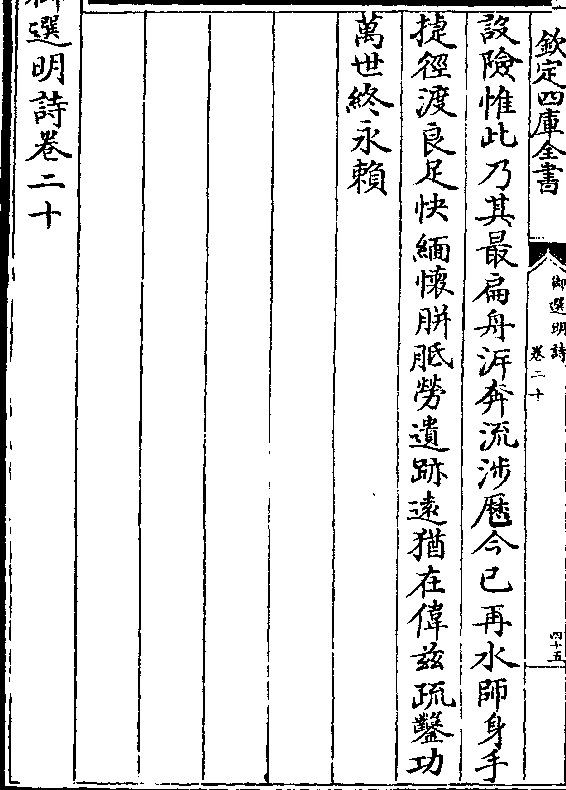 欽定四庫全書
御選明詩
卷二十
四十五
設險惟此乃其最扁舟泝奔流涉厯今已再水師身手
捷徑渡良足快緬懷胼胝勞遺跡遠猶在偉兹疏鑿功
萬世終永賴
御選明詩卷二十